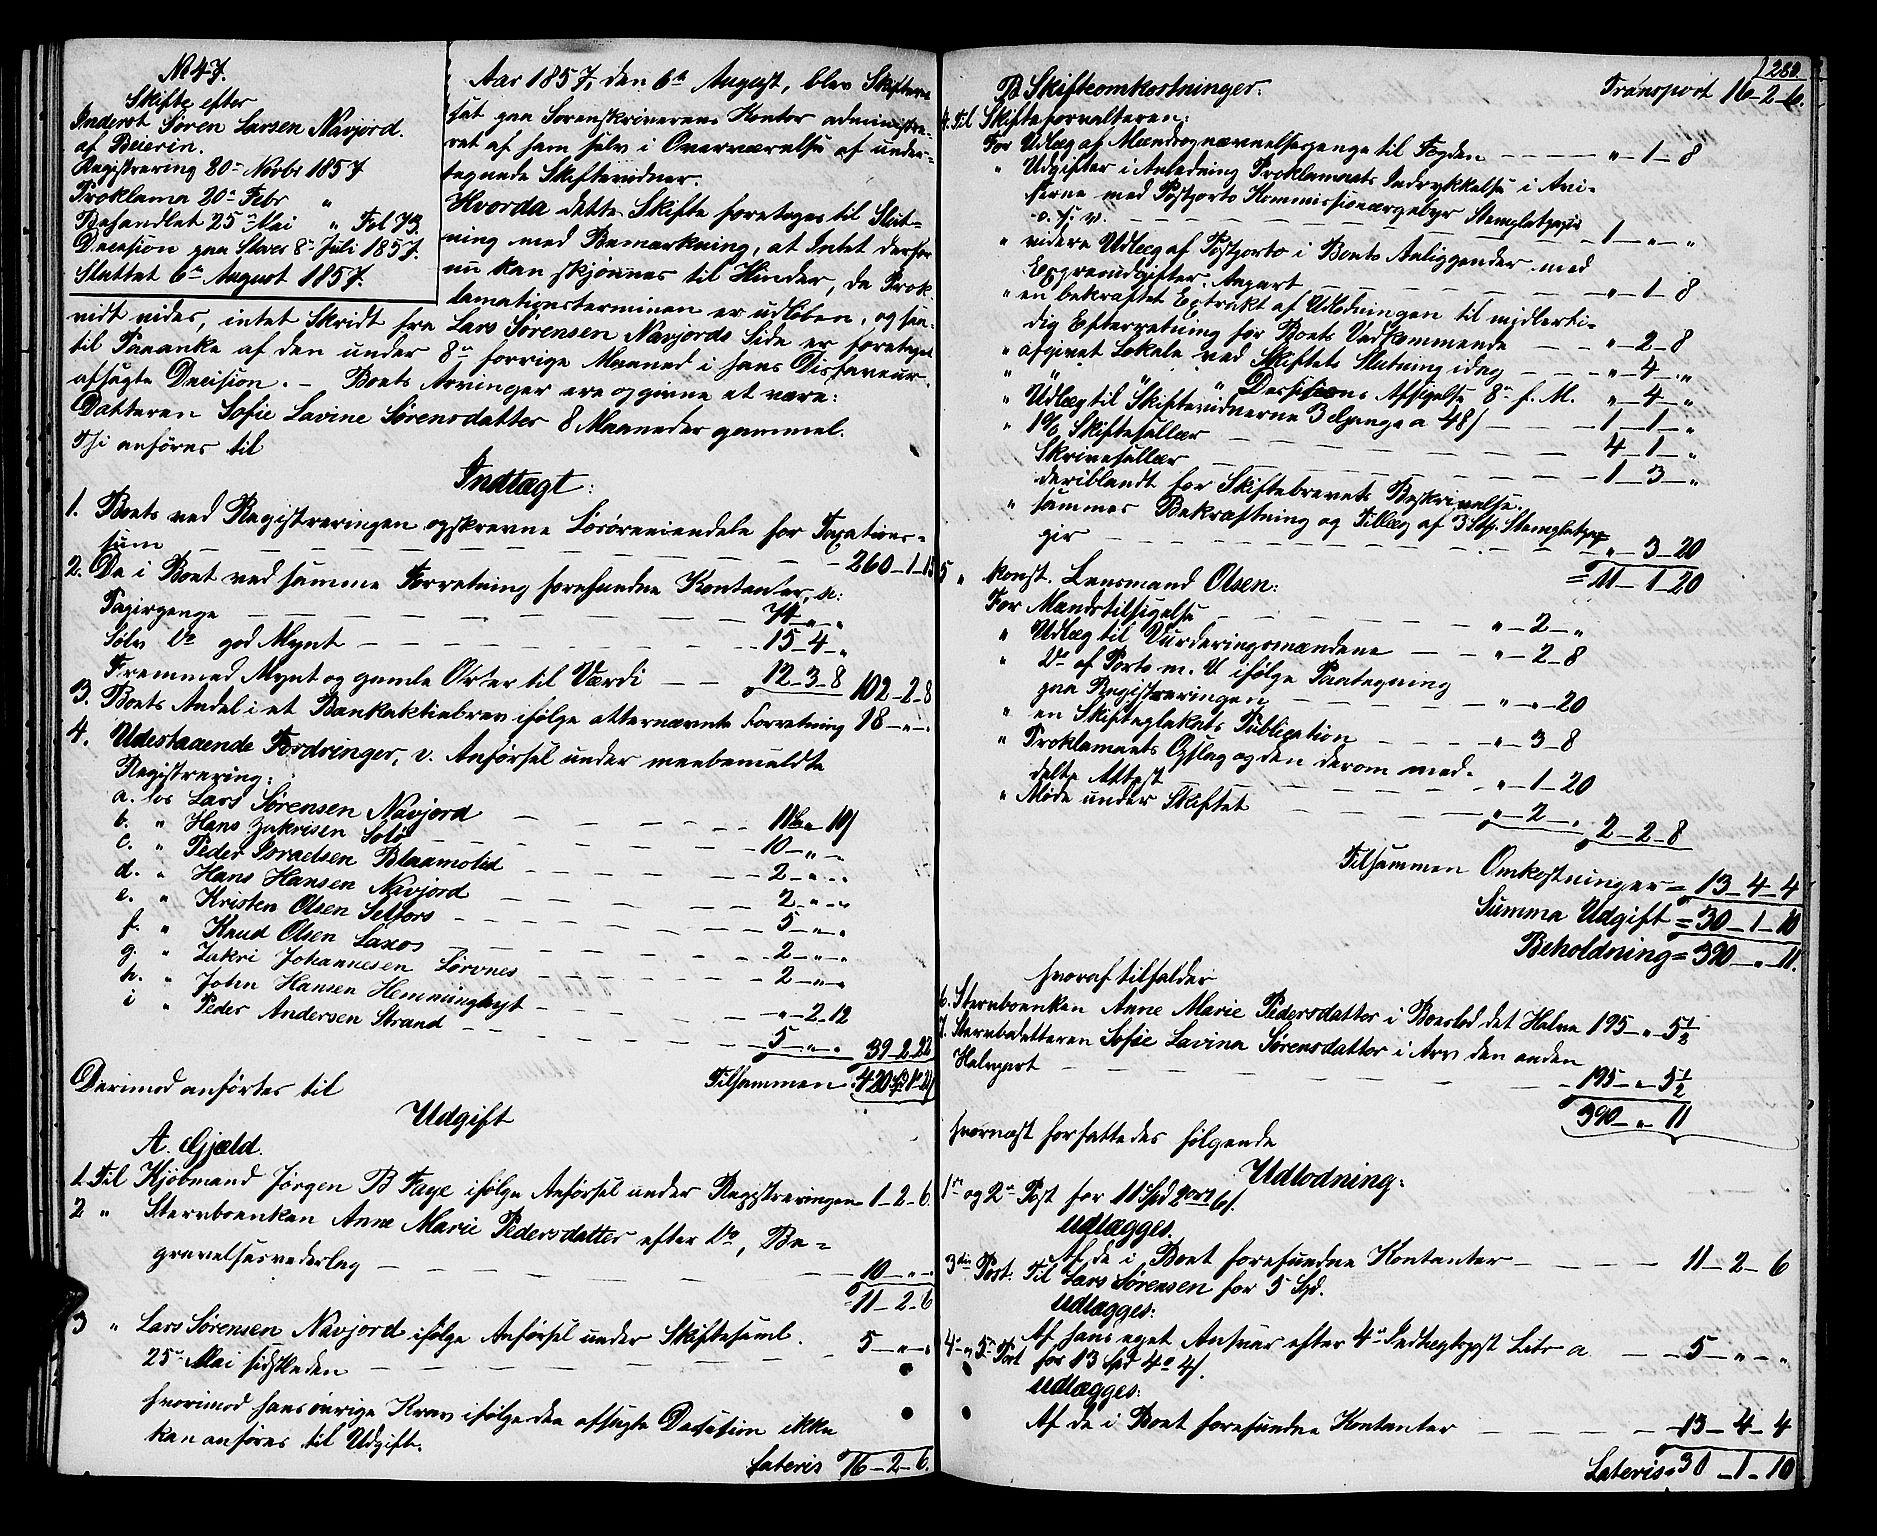 No 47.
Skifte efter
Inderst Søren Larsen Navjord.
af Beieren.
Registrering 20de Novbr 1857
Proklama 20de Febr "
Behandlet 25de Mai " Fol 73.
Decision paa Stævn 8de Juli 1857.
Sluttet 6te August 1857.
Aar 1857, den 6te August, blev Skifteret
sat paa Sorenskriverens Kontor administre-
ret af ham selv i Overværelse af under-
tegnede Skiftevidner.
Hvorda dette Skifte foretages til Slut-
ning med Bemærkning, at Intet derfor
nu kan skjønnes til Hinder, da Prok-
lamationsterminen er udløben, og saa-
vidt vides, intet Skridt fra Lars Sørensen Navjords Side er foretaget
til Paaanke af den under 8de forrige Maaned i hans Disfaveur
afsagte Decision. – Boets Arvinger ere opgivne at være:
Datteren Sofie Lavine Sørensdatter 8 Maaneder gammel.
Thi anføres til
Indtægt:
1. Boets ved Registreringen opskrevne Løsøreeiendele for Taxations-
sum 260-1-15
2. De i Boet ved samme Forretning forefundne Kontanter, a:
Papirpenge 74 - " - "
Sølv Do god Mynt 15-4- "
Fremmed Mynt og gamle Orter til Værdi 12-3-8 102-2-8
3. Boets Andel i et Bankaktiebrev ifølge otternævnte Forretning 18 - " - "
4. Udestaaende Fordringer, v. Anførsel under meerbemeldte
Registrering:
a. hos Lars Sørensen Navjord 11 " 10
b. " Hans Zakrisen Soløi 10 - " - "
c. " Peder Israelsen Blaamolid 2 - " - "
d. " Hans Hansen Navjord 2 - " - "
e. " Kristen Olsen Selfors 5 - " - "
f. " Knud Olsen Laxos 2 - " - "
g. " Zakri Johannesen Sørvnes 2 - " - "
h. " John Hansen Hemminghyt " - 2 - 12
i " Peder Andersen Strand 5 - " - " 39-2-22
Tilsammen 420 Sp 1 21
Derimod anførtes til
Udgift
A. Gjæld.
1. Til Kjøbmand Jørgen B Faye ifølge Anførsel under Registreringen 1-2-6
2 " Stervboenken Anne Marie Pedersdatter efter Do, Be-
gravelsesvederlag 10 - " - "
11-2-6
3 " Lars Sørensen Navjord ifølge Anførsel under Skiftesaml.
25de Mai sidstleden 5 - " - "
hvorimod hans øvrige Krav ifølge den afsagte Decision ikke
kan anføres til Udgift.
Lateris 16-2-6.
280.
Transport 16-2-6.
B. Skifteomkostninger.
4. Til Skifteforvalteren:
For Udlæg af Mandsopnævnelsespenge til Fogden " - 1 - 8
" Udgifter i Anledning Proklamaets Indrykkelse i Avi-
serne med Postporto Kommissionærgebyr Stemplet papir
o. s. v. 1 - " - "
" videre Udlæg af Postporto i Boets Anliggender med
Expresudgifter. Anpart " - 1 - 8
" en bekræftet Extrakt af Udlodningen til midlerti-
dig Efterretning for Boets Vedkommende " - 2 - 8
" afgivet Lokale ved Skiftets Slutning idag " - 4 - "
" " " " Decisions Afsigelse 8de f. M. " - 4 - "
" Udlæg til Skiftevidnerne 3 Gange a 48 s 1 - 1 - "
" 1% Skiftesallær 4 - 1 - "
Skriversallær 1 - 3 - "
deriblandt for Skiftebrevets Beskrivelse.
" sammes Bekræftning og Tillæg af 3 Stp. Stempletpa-
pir " - 3 - 20
= 11 - 1 - 20
5 " konst. Lensmand Olsen:
For Mandstilsigelse " - 2 - "
" Udlæg til Vurderingsmændene " - 2 - 8
" Do af Porto m. V. ifølge Paategning
paa Registreringen " - " - 20
" en Skifteplakats Publication " - 3 - 8
" Proklamaets Opslag og den derom med-
delte Attest " - 1 - 20
" Møde under Skiftet " - 2 - " 2 - 2 - 8
Tilsammen Omkostninger = 13-4-4
Summa Udgift = 30-1-10
Beholdning = 390 - " - 11.
hvoraf tilfalder
6. Stervboenken Anne Marie Pedersdatter i Boeslod det Halve 195 - " - 5 1/2
7. Stervbodatteren Sofie Lavina Sørensdatter i Arv den anden
Halvpart 195 - " - 5 1/2
390 - " - 11
hvornæst forfattedes følgende
Udlodning:
1ste og 2den Post for 11 Spd 2 ort 6 s.
udlægges.
Af de i Boet forefundne Kontanter 11 - 2 - 6
3die Post. Til Lars Sørensen for 5 Spd.
udlægges:
Af hans eget Ansvar efter 4de Indtægtspost Litr a 5 - " - "
4de og 5te Post for 13 Spd 4 o 4 s.
udlægges:
Af de i Boet forefundne Kontanter 13 - 4 - 4
Lateris 30 - 1 - 10